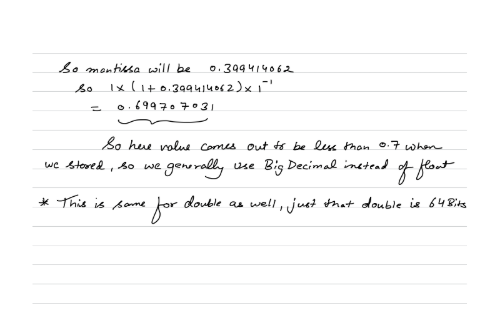 So mantissa will be 0.399414062
So 1x (1+ 0.399414062) x 1⁻¹
= 0.699707031
So here value comes out to be less than 0.7 when
we stored, so we generally use Big Decimal instead of float
* This is same for double as well, just that double is 64 Bits